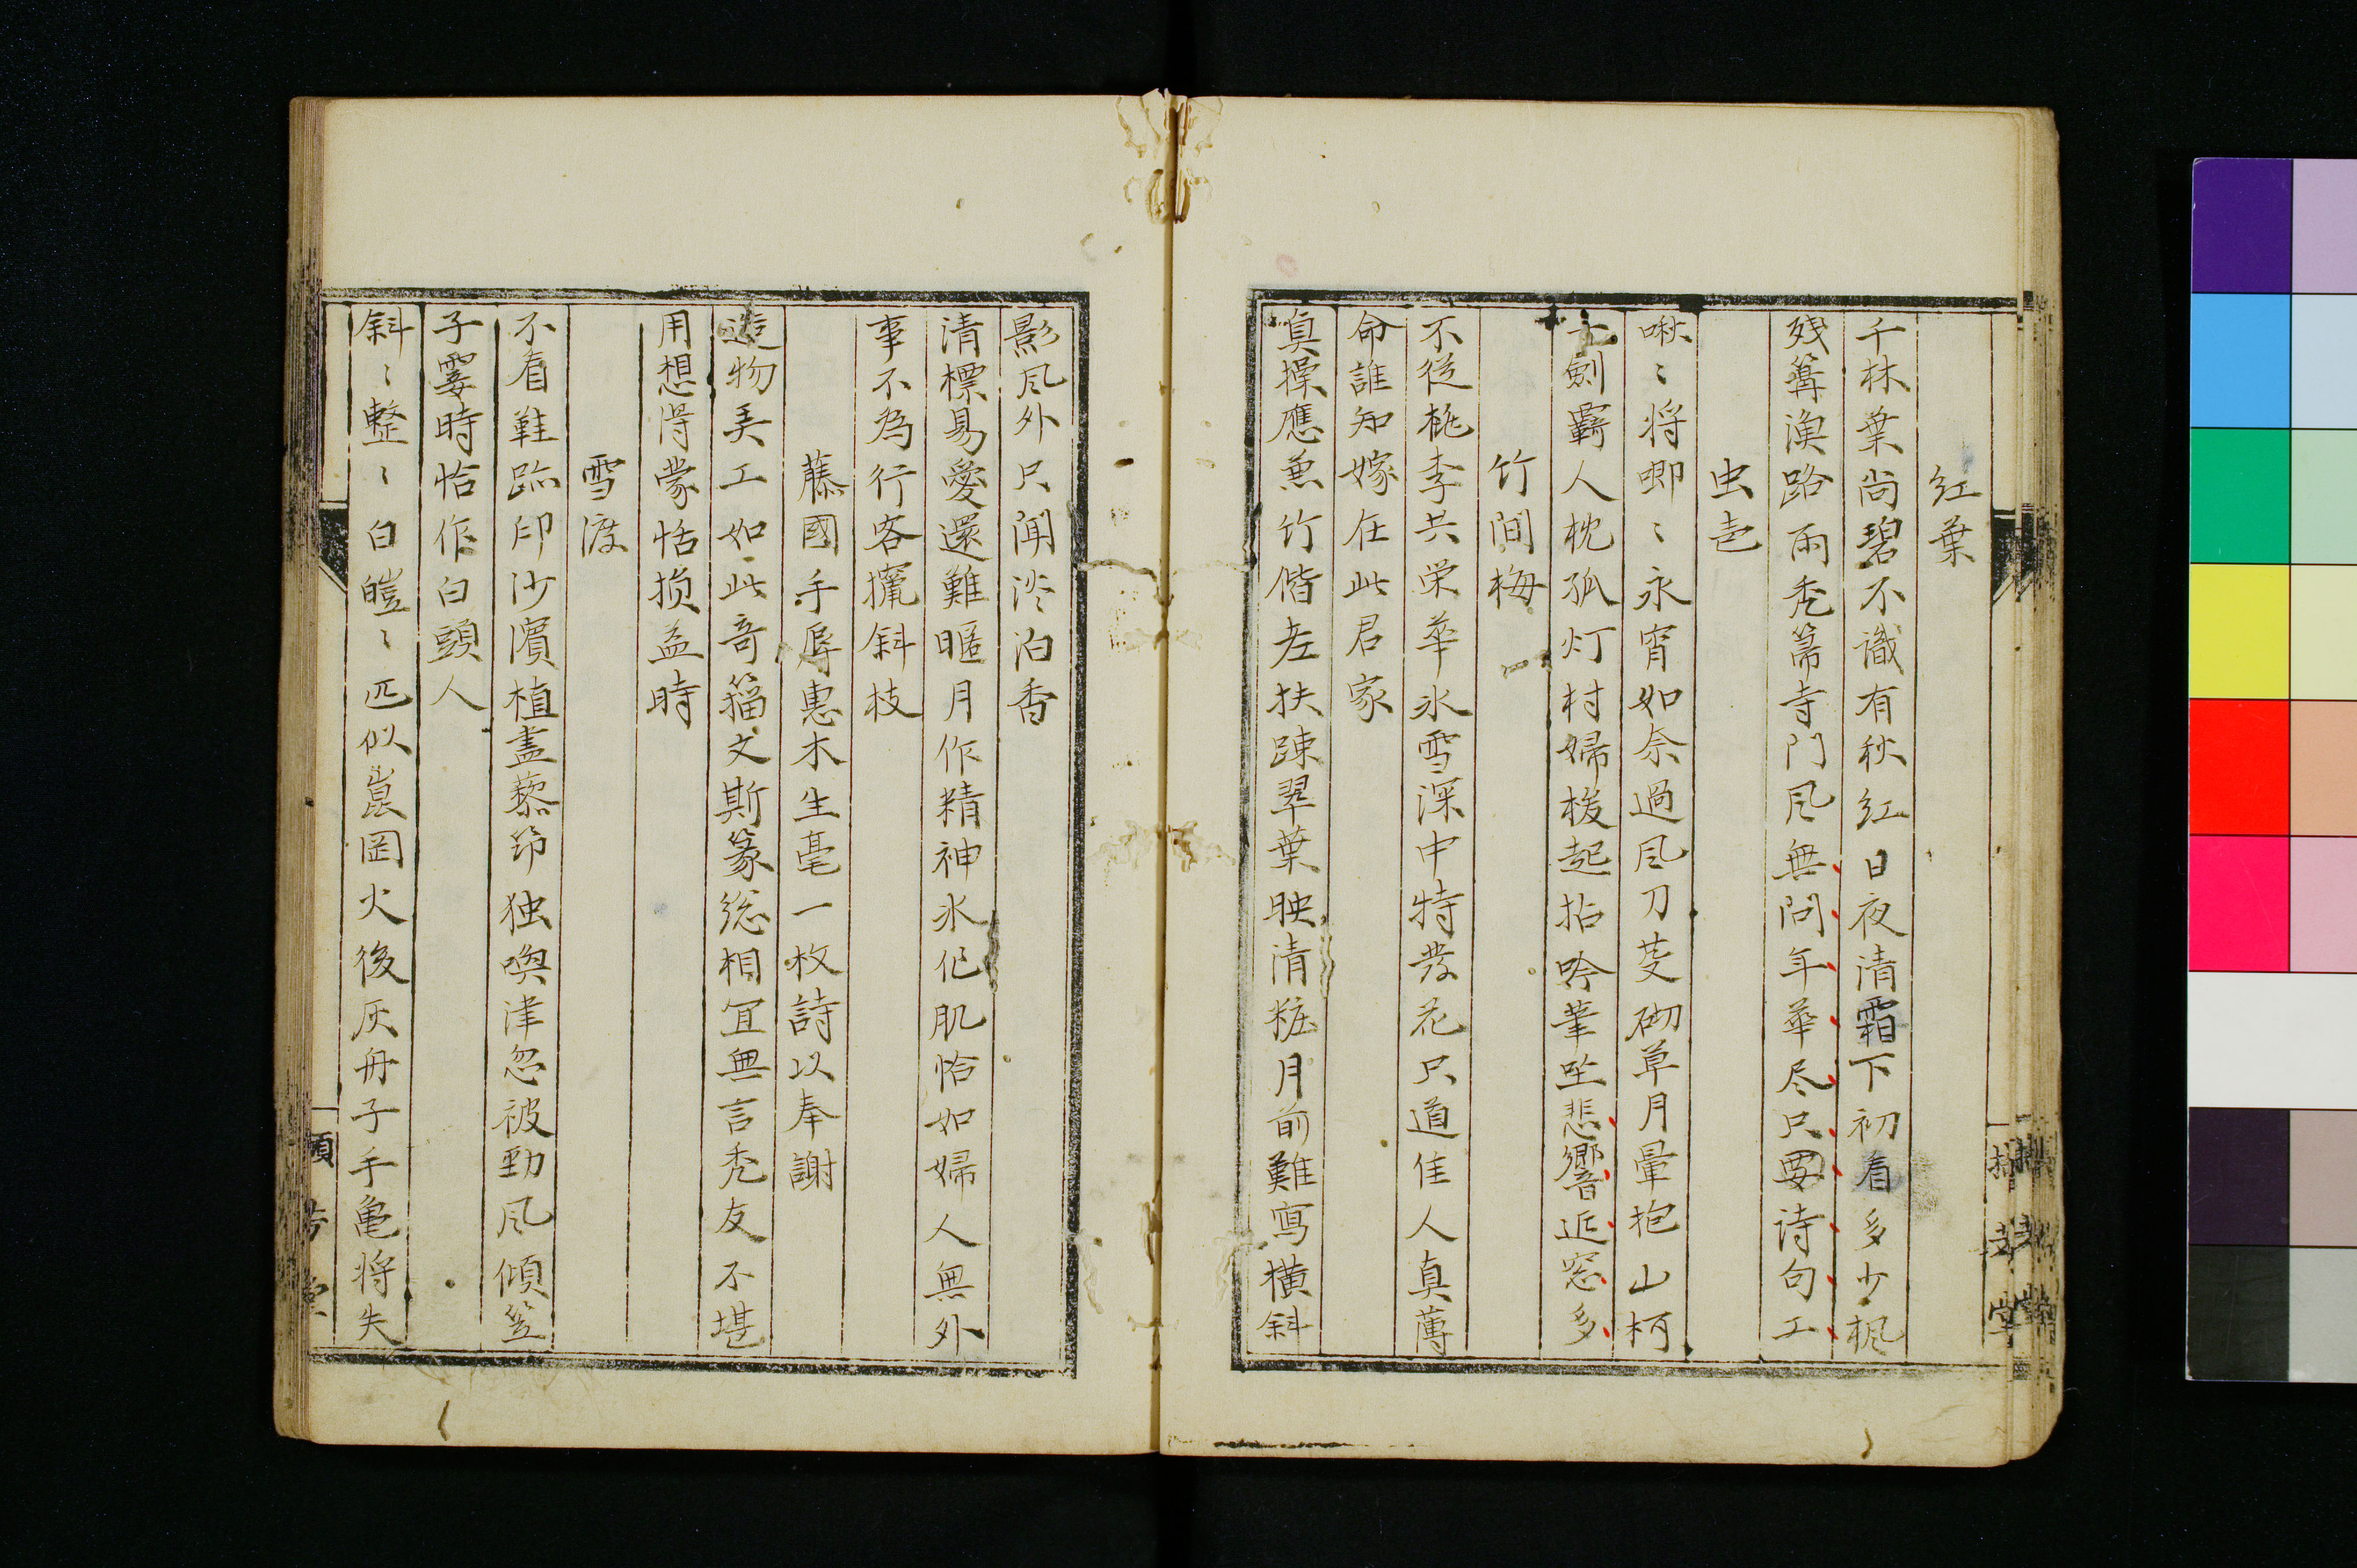 紅葉
千林葉尚碧不識有秋紅日夜清霜下初看多少楓
残篝漁路雨禿箒寺門風無問年華尽只要詩句工
虫声
啾〻将喞〻永宵如奈過風刀芟砌草月暈抱山柯
剣覇人枕孤灯村婦梭起拈吟筆坐悲響近窓多
竹間梅
不従桃李共栄華氷雪深中特発花只道佳人真薄
命誰知嫁在此君家
貞操應兼竹偕老扶踈翠葉映清粧月前難寫横斜
影風外只聞淡泊香
清標易愛還難暱月作精神氷作肌恰如婦人無外
事不為行客擺斜枝
藤國手辱惠木生毫一枚詩以奉謝
造物美工如此奇籀文斯篆総相冝無言禿友不堪
用想得蒙恬损益時
雪渡
不看鞋跡印沙濱植盡藜筇独喚津忽被勁風傾笠
子霎時恰作白頭人
斜〻整〻白皚〻匹似崑岡火後灰舟子手亀将失